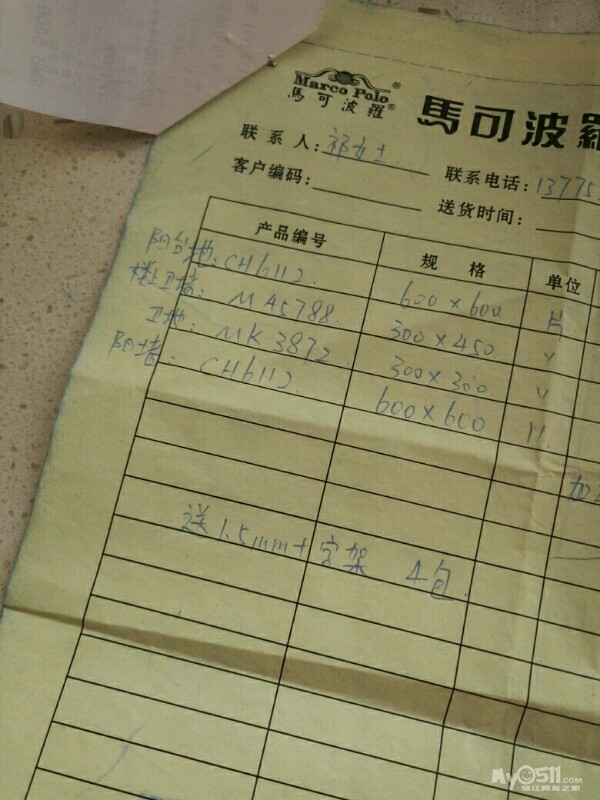 Marco Polo®
馬可波羅®
馬可波羅
联系人：祁女士 联系电话：13775
客户编码： 送货时间：
产品编号 规格 单位
阳台地：CH6112 600×600 片
楼上卫墙：M45788 300×450 〃
卫地：MK3872 300×300 〃
阳墙：CH6112 600×600 〃
加
送1.5mm十字架 4包
My0511.com
镇江网友之家